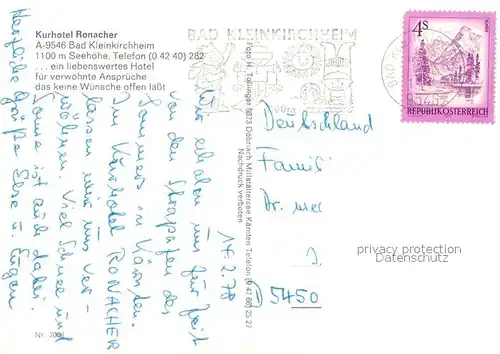 Kurhotel Ronacher
A-9546 Bad Kleinkirchheim
1100 m Seehöhe, Telefon (0 42 40) 282
... ein liebenswertes Hotel
für verwöhnte Ansprüche
das keine Wünsche offen läßt
BAD KLEINKIRCHHEIM
4S
REPUBLIK ÖSTERREICH
Foto H. Tollinger 9873 Döbriach Millstättersee Kärnten Telefon (0 47 66) 25 27
Nachdruck verboten
14.2.78
Wir erholen uns zur Zeit
von den Strapazen des
Sommers in Kärnten.
Im Kurhotel RONACHER
lassen wir uns ver-
wöhnen. Viel Schnee und
Sonne ist auch dabei.
Herzliche Grüße Else u. Eugen
Deutschland
Famil
Dr. med
D 5450
privacy protection
Datenschutz
Nr.